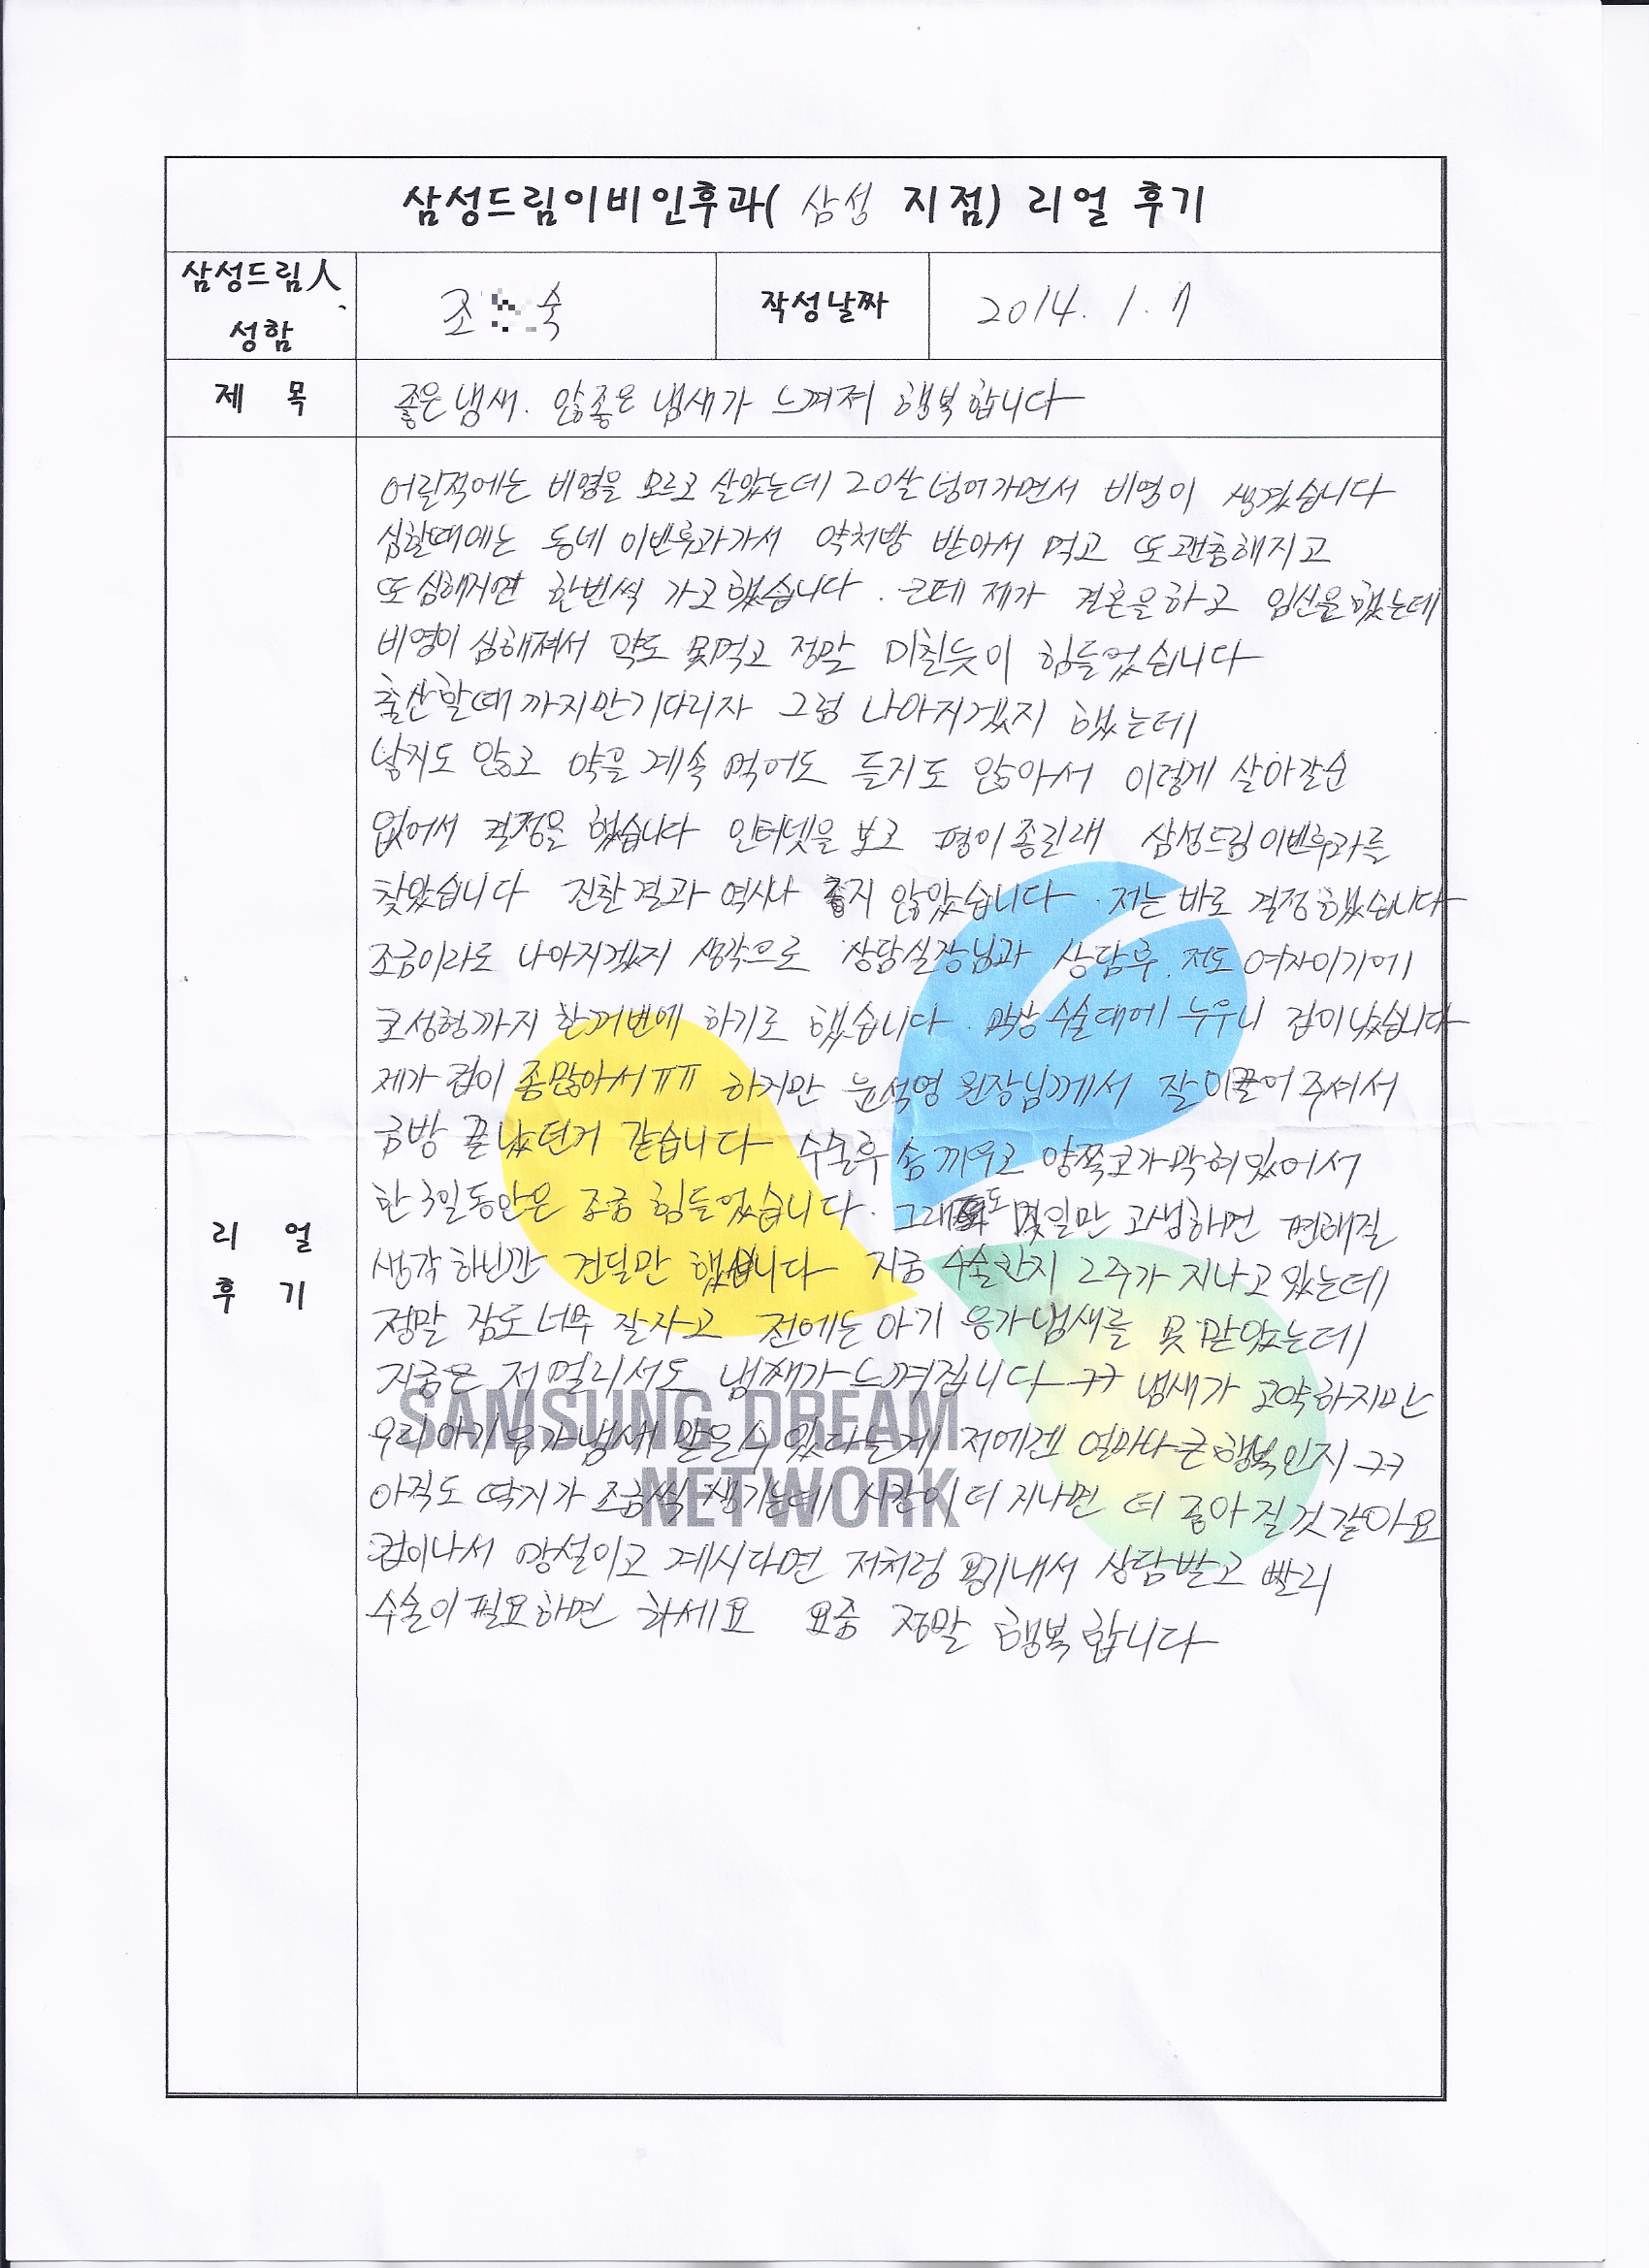 삼성드림이비인후과( 삼성 지점) 리얼 후기
삼성드림人 성함
조 숙
작성날짜
2014. 1. 7
제 목
좋은냄새. 않좋은 냄새가 느껴져 행복합니다
리 얼
후 기
어릴적에는 비염을 모르고 살았는데 20살 넘어가면서 비염이 생겼습니다
심할때에는 동네 이빈후과가서 약처방 받아서 먹고 또괜춘해지고
또심해지면 한번씩 가고했습니다. 근데 제가 결혼을하고 임신을했는데
비염이 심해져서 약도 못먹고 정말 미친듯이 힘들었습니다
출산할때까지만기다리자 그럼 나아지겠지 했는데
낳지도 않고 약을 계속 먹어도 듣지도 않아서 이렇게 살아갈순
없어서 결정을 했습니다 인터넷을 보고 평이좋길래 삼성드림이빈후과를
찾았습니다 진찰결과 역시나 좋지 않았습니다. 저는 바로 결정했습니다
조금이라도 나아지겠지 생각으로 상담실장님과 상담후. 저도 여자이기에
코성형까지 한꺼번에 하기로 했습니다. 막상 수술대에 누우니 겁이났습니다
제가 겁이 좀많아서ㅠㅠ 하지만 윤석영 원장님께서 잘이끌어주셔서
금방 끝났던거 같습니다 수술후 솜끼우고 양쪽코가막혀있어서
한3일동안은 조금 힘들었습니다. 그래도 몇일만 고생하면 편해질
생각하닌깐 견딜만 했습니다 지금 수술한지 2주가 지나고있는데
정말 잠도너무 잘자고 전에는 아기 응가냄새를 못맡았는데
지금은 저멀리서도 냄새가느껴집니다ㅋㅋ 냄새가 고약하지만
우리아기응가냄새 맡을수있다는게 저에겐 얼마나 큰행복인지ㅋㅋ
아직도 딱지가 조금씩 생기는데 시간이더지나면 더 좋아질것같아요
겁이나서 망설이고 계시다면 저처럼 용기내서 상담받고 빨리
수술이필요하면 하세요 요즘 정말 행복합니다
SAMSUNG DREAM
NETWORK